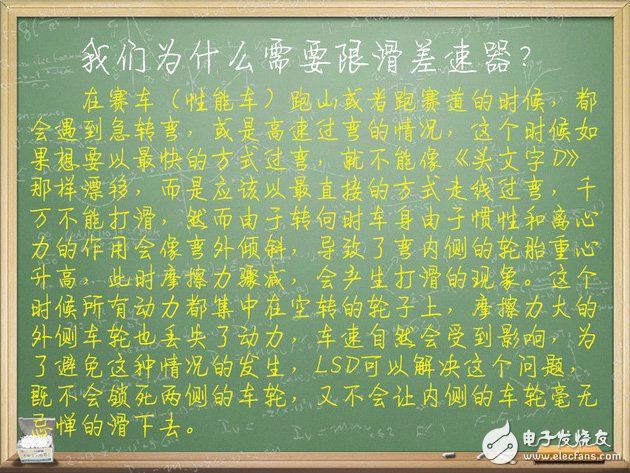 我们为什么需要限滑差速器？
在赛车（性能车）跑山或者跑赛道的时候，都
会遇到急转弯，或是高速过弯的情况，这个时候如
果想要以最快的方式过弯，就不能像《头文字D》
那样漂移，而是应该以最直接的方式走线过弯，千
万不能打滑，然而由于转向时车身由于惯性和离心
力的作用会像弯外倾斜，导致了弯内侧的轮胎重心
升高，此时摩擦力骤减，会产生打滑的现象。这个
时候所有动力都集中在空转的轮子上，摩擦力大的
外侧车轮也丢失了动力，车速自然会受到影响，为
了避免这种情况的发生，LSD可以解决这个问题，
既不会锁死两侧的车轮，又不会让内侧的车轮毫无
忌惮的滑下去。
电子发烧友
www.elecfans.com